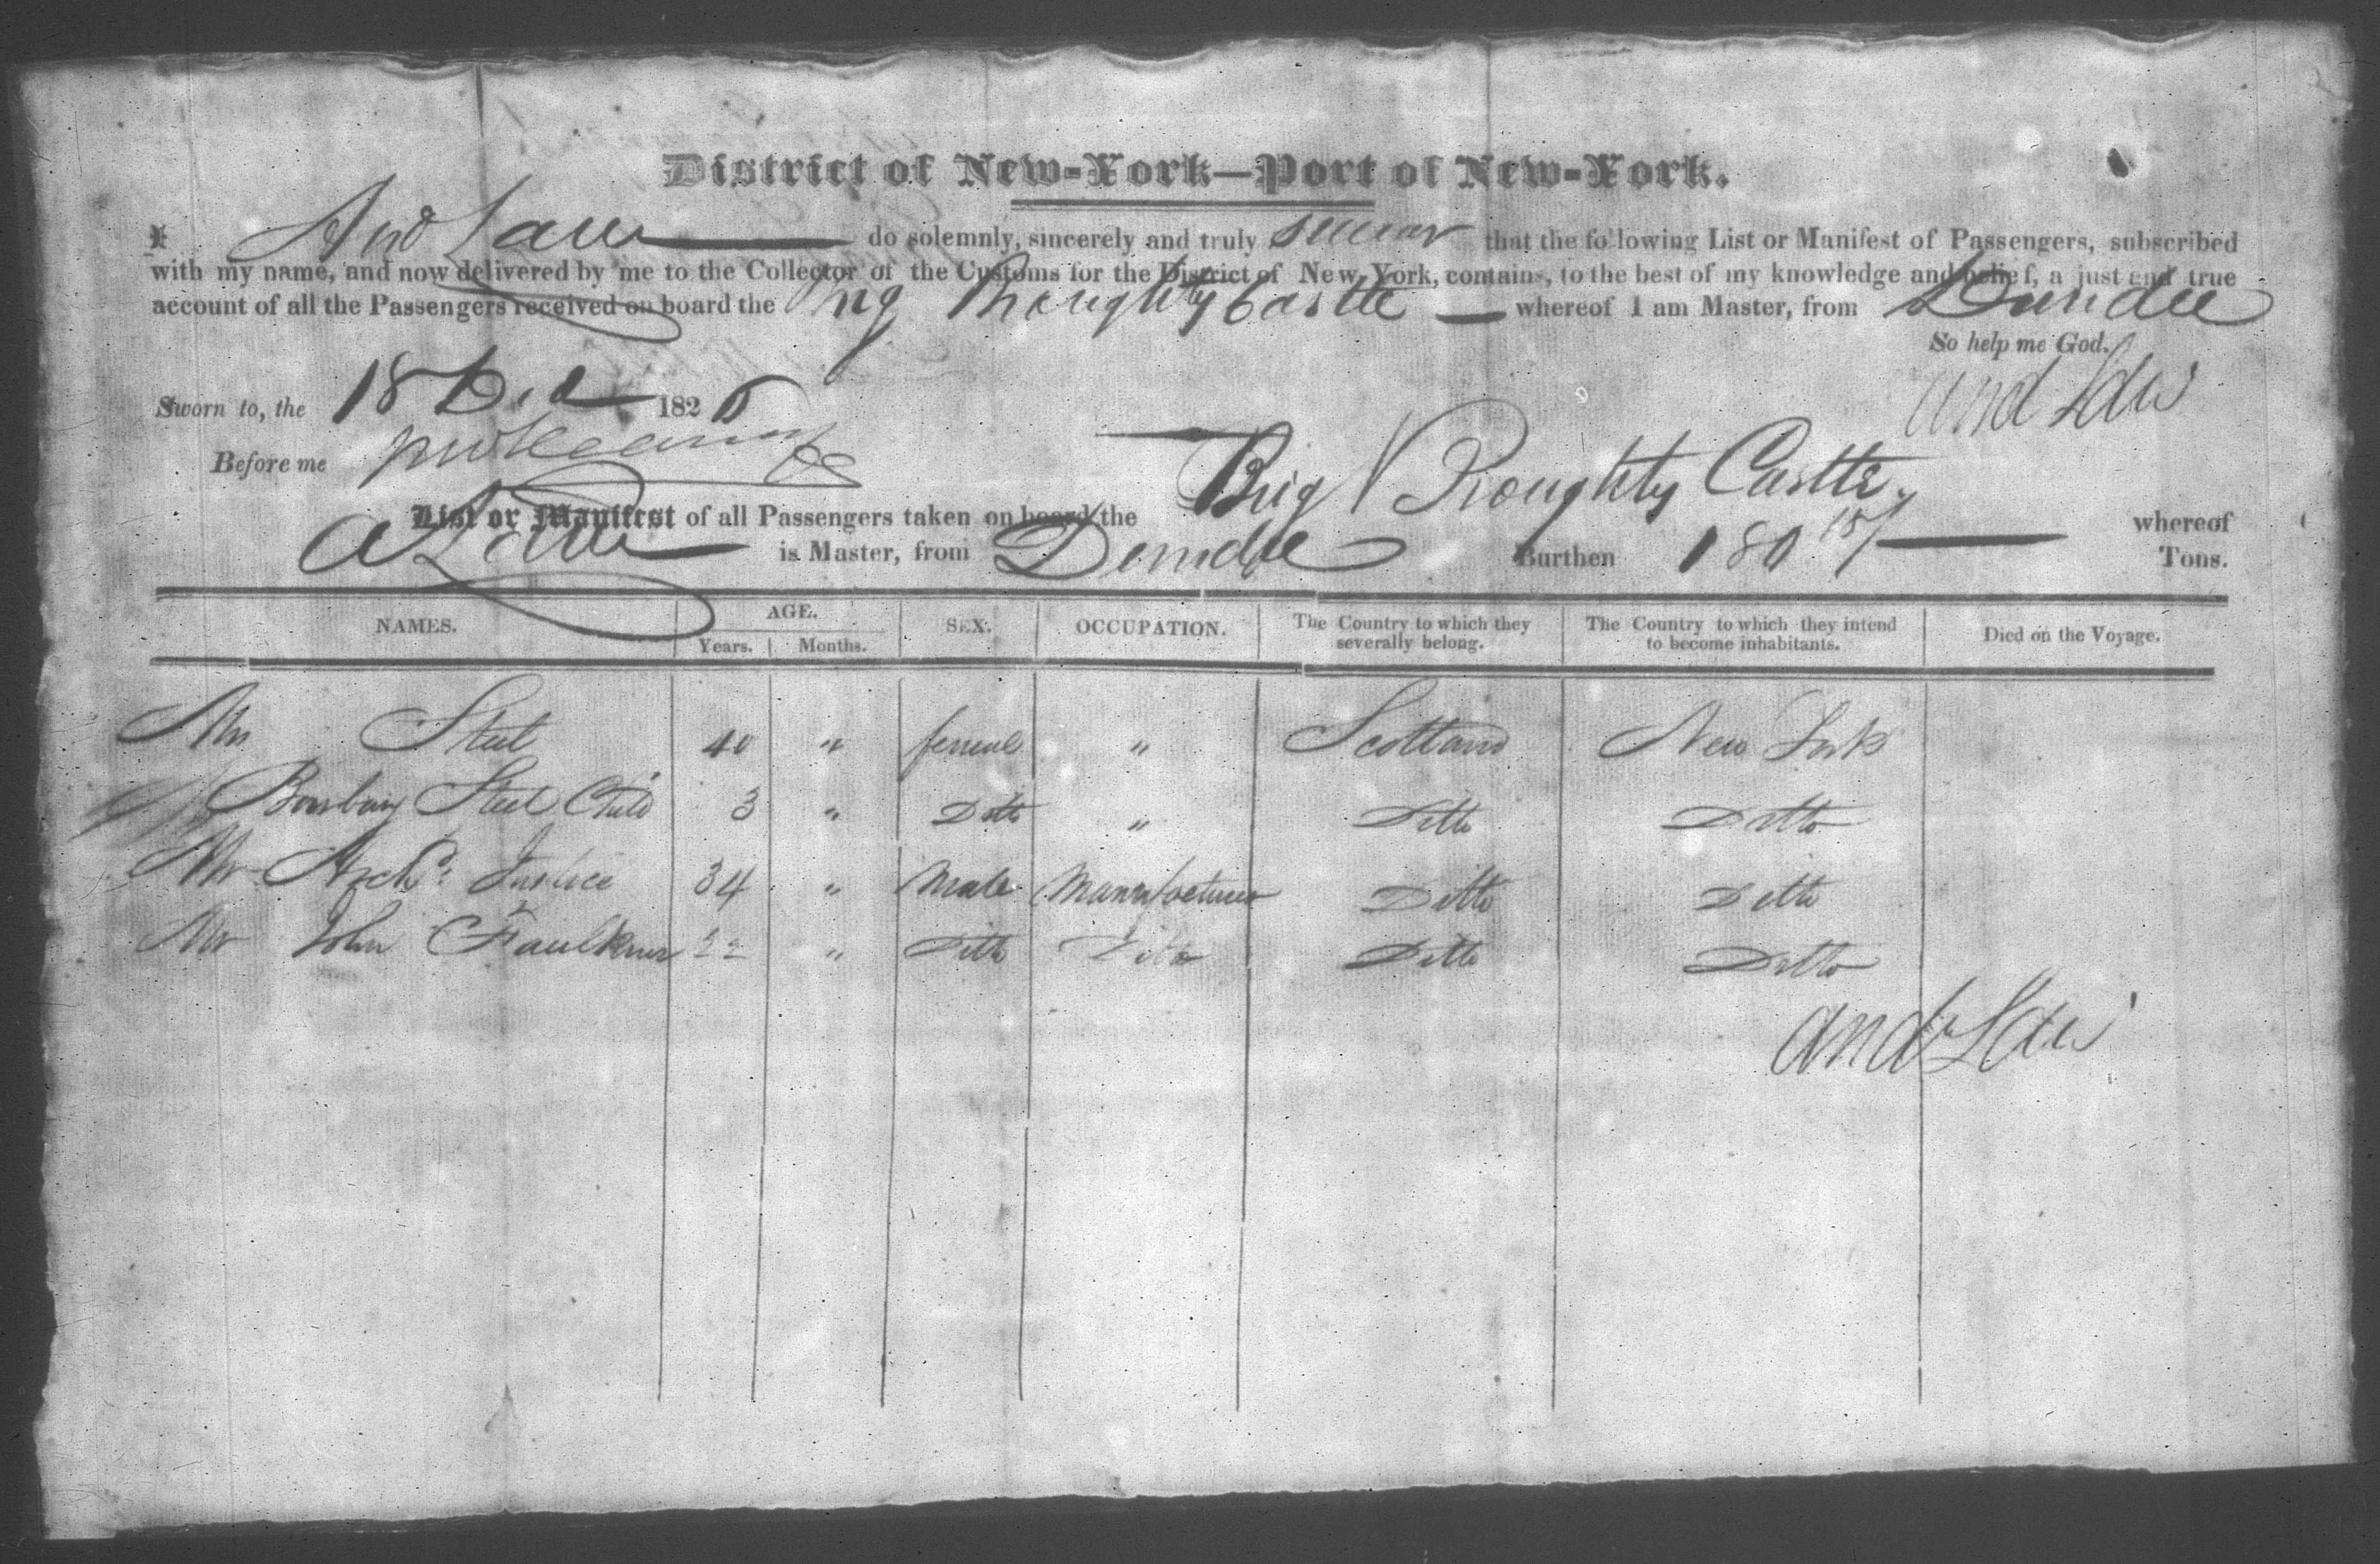 District of New-York—Port of New-York.
I And Law do solemnly, sincerely and truly swear that the following List or Manifest of Passengers, subscribed
with my name, and now delivered by me to the Collector of the Customs for the District of New-York, contains, to the best of my knowledge and belief, a just and true
account of all the Passengers received on board the Brig Broughty Castle whereof I am Master, from Dundee
So help me God.
And Law
Sworn to, the 18 Dec 182
Before me
List or Manifest of all Passengers taken on board the Brig Broughty Castle, whereof
A Law is Master, from Dundee Burthen 180 Tons.
NAMES. AGE. SEX. OCCUPATION. The Country to which they severally belong. The Country to which they intend to become inhabitants. Died on the Voyage.
Years. Months.
Mrs Steel 40 " female " Scotland New York
Steel Child 3 " Ditto " Ditto Ditto
Mr Archd. 34 " Male Manufacturer Ditto Ditto
Mr John Faulkner 22 " Ditto Ditto Ditto Ditto
And Law